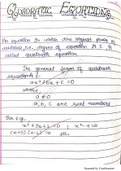 QUADRATIC EQUATIONS
An equation in which the highest power of
variable i.e. degree of equation is 2, is
called quadratic equation
The general form of quadratic
equation :
ax² + bx + c = 0
where,
a ≠ 0
a, b, c are real numbers
For e.g.